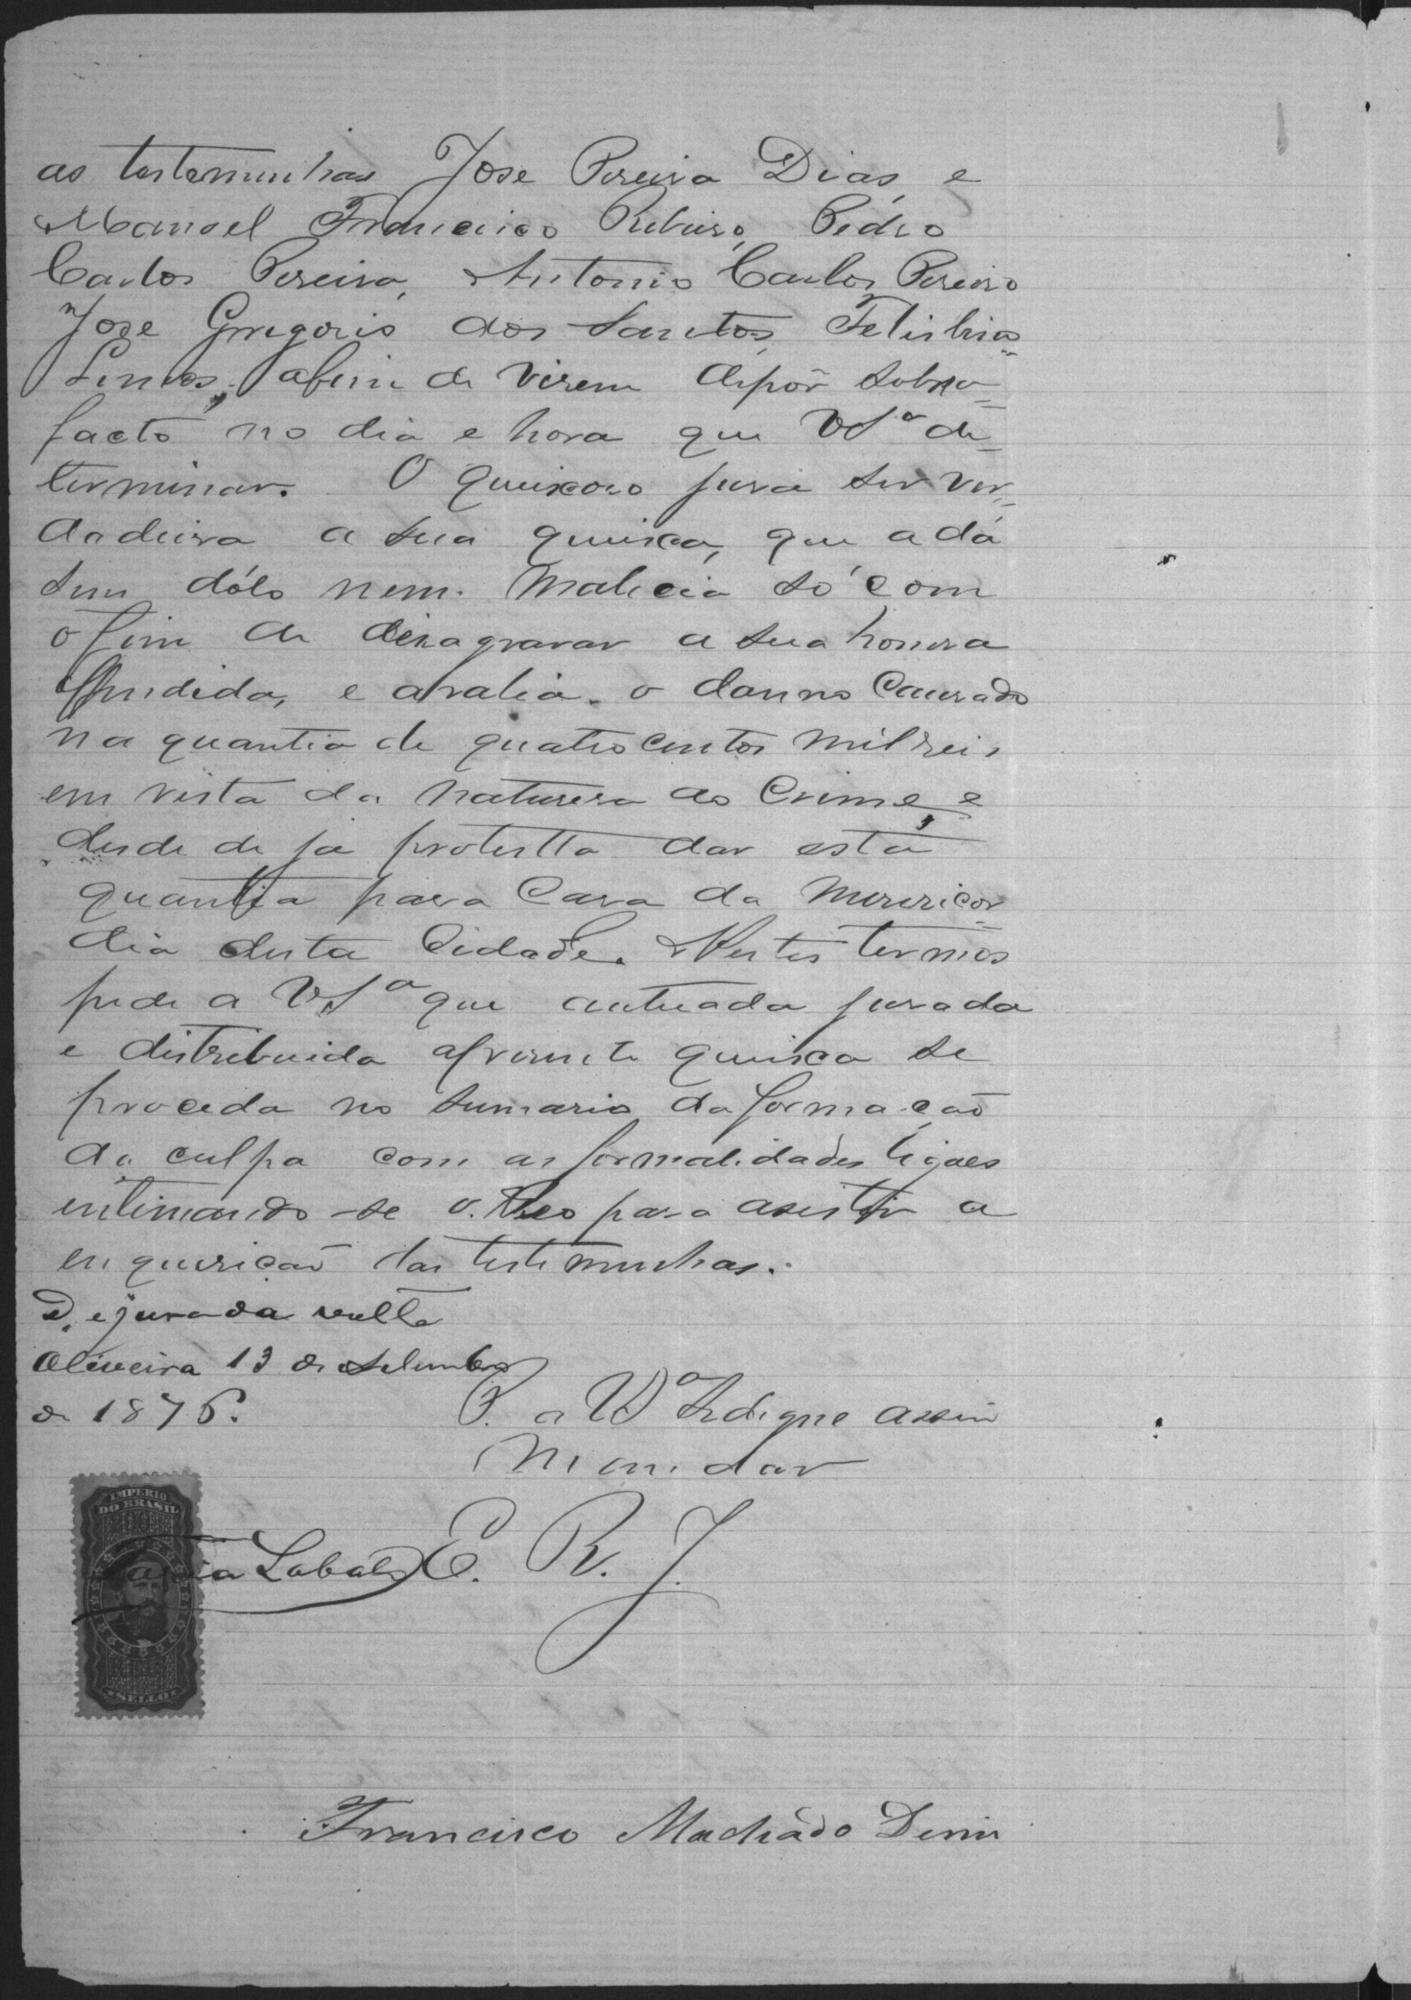 as testemunhas Jose Pereira Dias, e
Manoel Francisco Ribeiro, Pedro
Carlos Pereira, Antonio Carlos Pereira
Jose Gregorio dos Santos,
Lemes, afim de virem depôr sobre o
facto no dia e hora que VSª de-
terminar. O queixoso jura ser ver-
dadeira a sua queixa, que a dá
sem dólo nem malicia só com
o fim de dezagravar a sua honra
offendida, e avalia o danno causado
na quantia de quatrocentos mil reis
em vista da naturesa do Crime, e
desde de já protesta dar esta
quantia para Casa da Misericor-
dia desta Cidade. Nestes termos
pede a VSª que autuada jurada
e distribuida a presente queixa se
proceda no sumario da formação
da culpa com as formalidades legaes
intimando-se o Reo para asistir a
enquirição das testemunhas.
D. e jurada volte
Oliveira 13 de Setembro
de 1876.
P. a VSª Se digne assim
mandar
IMPERIO
DO BRASIL
SELLO
Lobato
E. R. J.
Francisco Machado Diniz